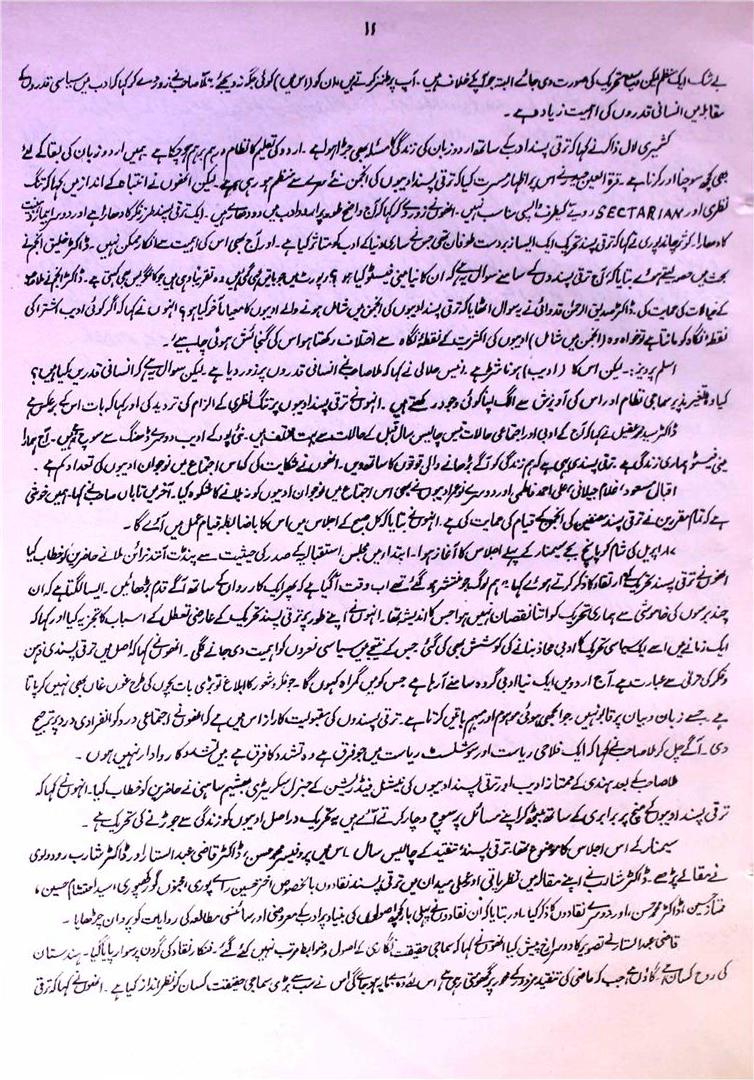 ۱۱
بے شک ایک منظم لیکن وسیع تحریک کی صورت دی جائے البتہ جو اسکے خلاف ہیں۔ آپ پر طنز کرتے ہیں ان کو (اس میں) کوئی جگہ نہ دیجئے۔ ملا صاحب نے زور دے کر کہا کہ ادب میں سیاسی قدروں کے
مقابلہ میں انسانی قدروں کی اہمیت زیادہ ہے۔
کشمیری لال ذاکر نے کہا کہ ترقی پسند ادب کے ساتھ اردو زبان کی زندگی کا مسئلہ بھی جڑا ہوا ہے۔ اردو کی تعلیم کا نظام درہم برہم ہو چکا ہے۔ ہمیں اردو زبان کی بقا کے لئے
بھی کچھ سوچنا اور کرنا ہے۔ قرۃ العین حیدر نے اس پر اظہار مسرت کیا کہ ترقی پسند ادیبوں کی انجمن نئے سرے سے منظم ہو رہی ہے۔ لیکن انھوں نے انتباہ کے انداز میں کہا کہ تنگ
نظری اور SECTARIAN رویے کیطرف واپسی مناسب نہیں۔ انھوں نے زور دے کر کہا کہ آج واضح طور پر اردو ادب میں دو دھارے ہیں۔ ایک ترقی پسند طرز فکر کا دھارا ہے اور دوسرا
کا دھارا۔ کوثر چاند پوری نے کہا کہ ترقی پسند تحریک ایک ایسا زبردست طوفان تھی جس نے ساری دنیا کے ادب کو متاثر کیا ہے۔ اور آج بھی اس کی اہمیت سے انکار ممکن نہیں۔ ڈاکٹر خلیق انجم نے
بحث میں حصہ لیتے ہوئے بتایا کہ آج ترقی پسندوں کے سامنے سوال یہ ہے کہ ان کا نیا مینی فیسٹو کیا ہو؟ رپورٹ میں جو باتیں کہی گئی ہیں وہ تقریباً وہی ہیں جو کانگریس بھی کہتی ہے۔ ڈاکٹر انجم نے ملا صاحب
کے خیالات کی حمایت کی۔ ڈاکٹر صدیق الرحمٰن قدوائی نے یہ سوال اٹھایا کہ ترقی پسند ادیبوں کی انجمن میں شامل ہونے والے ادیبوں کا معیار آخر کیا ہو؟ انہوں نے کہا کہ اگر کوئی ادیب اشتراکی
نقطۂ نگاہ کو مانتا ہے تو خواہ وہ (انجمن میں شامل) ادیبوں کی اکثریت کے نقطۂ نگاہ سے اختلاف رکھتا ہو اس کی گنجائش ہونی چاہیے۔
اسلم پرویز:۔ لیکن اس کا (ادیب) ہونا شرط ہے۔ انیس جلالی نے کہا کہ ملا صاحب نے انسانی قدروں پر زور دیا ہے۔ لیکن سوال یہ ہے کہ انسانی قدریں کیا ہیں؟
کیا وہ تغیر پذیر سماجی نظام اور اس کی آویزش سے الگ اپنا کوئی وجود رکھتے ہیں۔ انہوں نے ترقی پسند ادیبوں پر تنگ نظری کے الزام کی تردید کی اور کہا کہ بات اس کے برعکس ہے
ڈاکٹر سید محمد عقیل نے کہا کہ آج کے ادبی اور اجتماعی حالات تیس چالیس سال قبل کے حالات سے بہت مختلف ہیں۔ نئی پود کے ادیب دوسرے ڈھنگ سے سوچتے ہیں۔ آج ہمارا
مینی فیسٹو ہماری زندگی ہے۔ ترقی پسندی یہی ہے کہ ہم زندگی کو آگے بڑھانے والی قوتوں کا ساتھ دیں۔ انھوں نے شکایت کی کہ اس اجتماع میں نوجوان ادیبوں کی تعداد کم ہے۔
اقبال مسعود، غلام جیلانی، علی احمد فاطمی اور دوسرے نوعمر ادیبوں نے بھی اس اجتماع میں نوجوان ادیبوں کو نہ بلانے کا شکوہ کیا۔ آخر میں تاباں صاحب نے کہا۔ ہمیں خوشی
ہے کہ تمام مقررین نے ترقی پسند مصنفین کی انجمن کے قیام کی حمایت کی ہے۔ انہوں نے بتایا کہ کل صبح کے اجلاس میں اس کا باضابطہ قیام عمل میں آئے گا۔
اپریل کی شام کو پانچ بجے سیمنار کے پہلے اجلاس کا آغاز ہوا۔ ابتدا میں مجلس استقبالیہ کے صدر کی حیثیت سے پنڈت آنند نرائن ملا نے حاضرین کو خطاب کیا
انھوں نے ترقی پسند تحریک کے ارتقاء کا ذکر کرتے ہوئے کہا "ہم لوگ جو منتشر ہو گئے تھے اب وقت آ گیا ہے کہ پھر ایک کارواں کے ساتھ آگے قدم بڑھائیں۔ ایسا لگتا ہے کہ ان
چند برسوں کی خاموشی سے ہماری تحریک کو اتنا نقصان نہیں ہوا جس کا اندیشہ تھا۔ انہوں نے اپنے طور پر ترقی پسند تحریک کے عارضی تعطل کے اسباب کا تجزیہ کیا اور کہا کہ
ایک زمانے میں اسے ایک سیاسی تحریک کا ادبی محاذ بنانے کی کوشش بھی کی گئی جس کے نتیجے میں سیاسی نعروں کو اہمیت دی جانے لگی۔ انھوں نے کہا کہ اصل میں ترقی پسندی ذہن
و فکر کی ترقی سے عبارت ہے۔ آج اردو میں ایک نیا ادبی گروہ سامنے آ رہا ہے جس کو میں گمراہ کہوں گا۔ جو فکر و شعور کا ابلاغ تو بڑی بات بچوں کی طرح غوں غاں بھی نہیں کر پاتا
ہے جسے زبان و بیان پر قابو نہیں۔ جو الجھی ہوئی موہوم اور مبہم باتیں کرتا ہے۔ ترقی پسندوں کی مقبولیت کا راز اس میں ہے کہ انھوں نے اجتماعی درد کو انفرادی درد پر ترجیح
دی۔ آگے چل کر ملا صاحب نے کہا کہ ایک فلاحی ریاست اور سوشلسٹ ریاست میں جو فرق ہے وہ تشدد کا فرق ہے میں تشدد کا روادار نہیں ہوں۔
ملا صاحب کے بعد ہندی کے ممتاز ادیب اور ترقی پسند ادیبوں کی نیشنل فیڈریشن کے جنرل سکریٹری بھیشم ساہنی نے حاضرین کو خطاب کیا۔ انہوں نے کہا کہ
ترقی پسند ادیبوں کے منچ پر برابری کے ساتھ بیٹھ کر اپنے مسائل پر سوچ وچار کرتے آئے ہیں یہ تحریک دراصل ادیبوں کو زندگی سے جوڑنے کی تحریک ہے۔
سیمنار کے اس اجلاس کا موضوع تھا۔ ترقی پسند تنقید کے چالیس سال۔ اس میں پروفیسر محمد حسن، ڈاکٹر قاضی عبدالستار اور ڈاکٹر شارب ردولوی
نے مقالے پڑھے۔ ڈاکٹر شارب نے اپنے مقالہ میں نظریاتی اور عملی میدان میں ترقی پسند نقادوں بالخصوص اختر حسین رائے پوری، مجنوں گورکھپوری، سید احتشام حسین،
ممتاز حسین، ڈاکٹر محمد حسن، اور دوسرے نقادوں کا ذکر کیا۔ اور بتایا کہ ان نقادوں نے پہلی بار کچھ اصولوں کی بنیاد پر ادب کے معروضی اور سائنسی مطالعہ کی روایت کو پروان چڑھایا۔
قاضی عبدالستار نے تصویر کا دوسرا رخ پیش کیا انھوں نے کہا کہ سماجی حقیقت نگاری کے اصول و ضوابط مرتب نہیں کئے گئے۔ فنکار نقاد کی گردن پر سوار پایا گیا۔ ہندستان
کی روح کسان ہے گاؤں ہے جب کہ ماضی کی تنقید مزدور کے محور پر گھومتی رہی ہے اس لئے وہ بے ہو جائے گی اس نے سب سے بڑی سماجی حقیقت کسان کو نظر انداز کیا ہے۔ انھوں نے کہا کہ ترقی